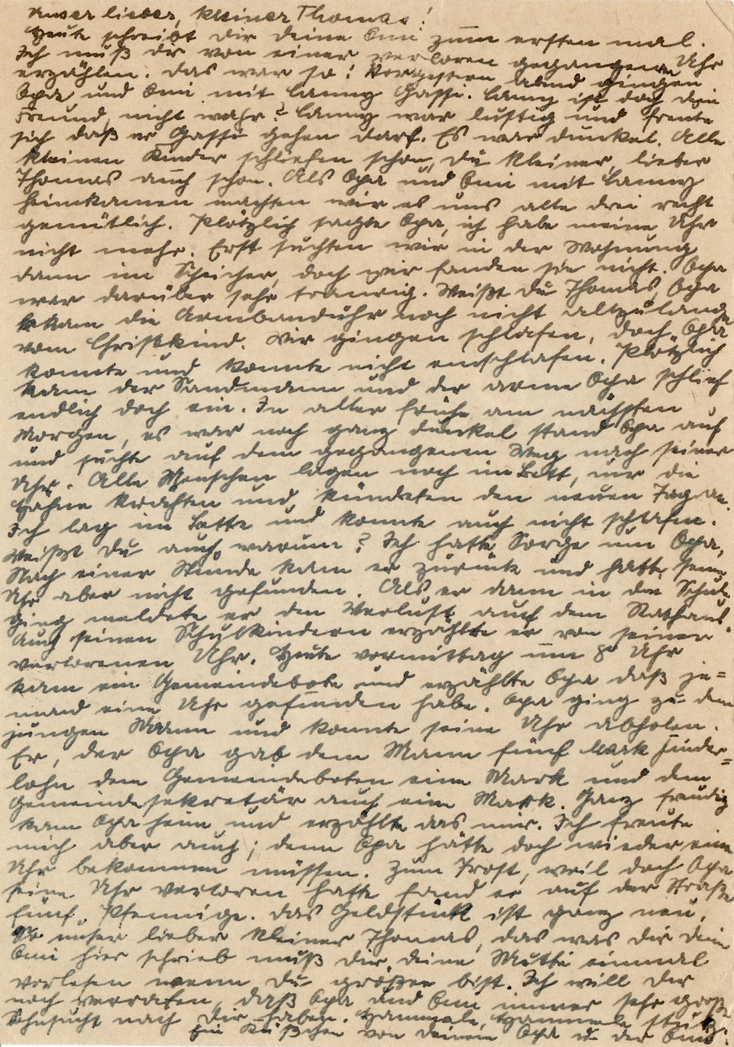 Unser lieber, kleiner Thomas!
Heute schreibt dir deine Omi zum ersten mal.
Ich muß dir von einer verloren gegangenen Uhr
erzählen. Das war so: Vorgestern abend gingen
Opa und Omi mit Lanny Gassi. Lanny ist doch dein
Freund, nicht wahr? Lanny war lustig und freute
sich daß er Gassi gehen darf. Es war dunkel. Alle
kleinen Kinder schliefen schon, du kleiner, lieber
Thomas auch schon. Als Opa und Omi mit Lanny
heimkamen machten wir es uns alle drei recht
gemütlich. Plötzlich sagte Opa, ich habe meine Uhr
nicht mehr. Erst suchten wir in der Wohnung
dann im Speicher, doch wir fanden sie nicht. Opa
war darüber sehr traurig. Weißt du Thomas Opa
bekam die Armbanduhr noch nicht allzulange
vom Christkind. Wir gingen schlafen, doch Opa
konnte und konnte nicht einschlafen. Plötzlich
kam der Sandmann und der arme Opa schlief
endlich doch ein. In aller frühe am nächsten
Morgen, es war noch ganz dunkel stand Opa auf
und suchte auf dem gegangenen Weg nach seiner
Uhr. Alle Menschen lagen noch im Bett, nur die
Hähne krähten und kündeten den neuen Tag an.
Ich lag im Bette und konnte auch nicht schlafen.
Weißt du auch warum? Ich hatte Sorge um Opa.
Nach einer Stunde kam er zurück und hatte seine
Uhr aber nicht gefunden. Als er dann in die Schule
ging meldete er den Verlust auf dem Rathaus.
Auch seinen Schulkindern erzählte er von seiner
verlorenen Uhr. Heute vormittag um 8 Uhr
kam ein Gemeindebote und erzählte Opa daß je=
mand eine Uhr gefunden habe. Opa ging zu dem
jungen Mann und konnte seine Uhr abholen.
Er, der Opa gab dem Mann fünf Mark Finder=
lohn dem Gemeindeboten eine Mark und dem
Gemeindesekretär auch eine Mark. Ganz freudig
kam Opa heim und erzählte das mir. Ich freute
mich aber auch; denn Opa hätte doch wieder eine
Uhr bekommen müssen. Zum Trost, weil doch Opa
seine Uhr verloren hatte fand er auf der Straße
fünf Pfennige. Das Geldstück ist ganz neu.
So unser lieber kleiner Thomas, das was dir dein
Omi hier schrieb muß dir deine Mutti einmal
vorlesen wenn du größer bist. Ich will dir
noch verraten, daß Opa und Omi immer sehr große
Sehnsucht nach dir haben.
Ein Küßchen von deinem Opa u. der Omi.